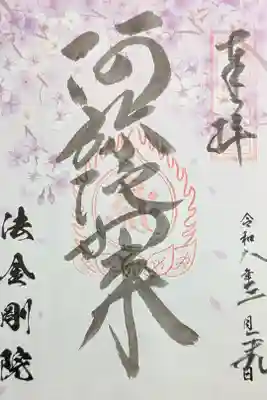 奉拝
令和八年 月 日
阿弥陀如来
法金剛院